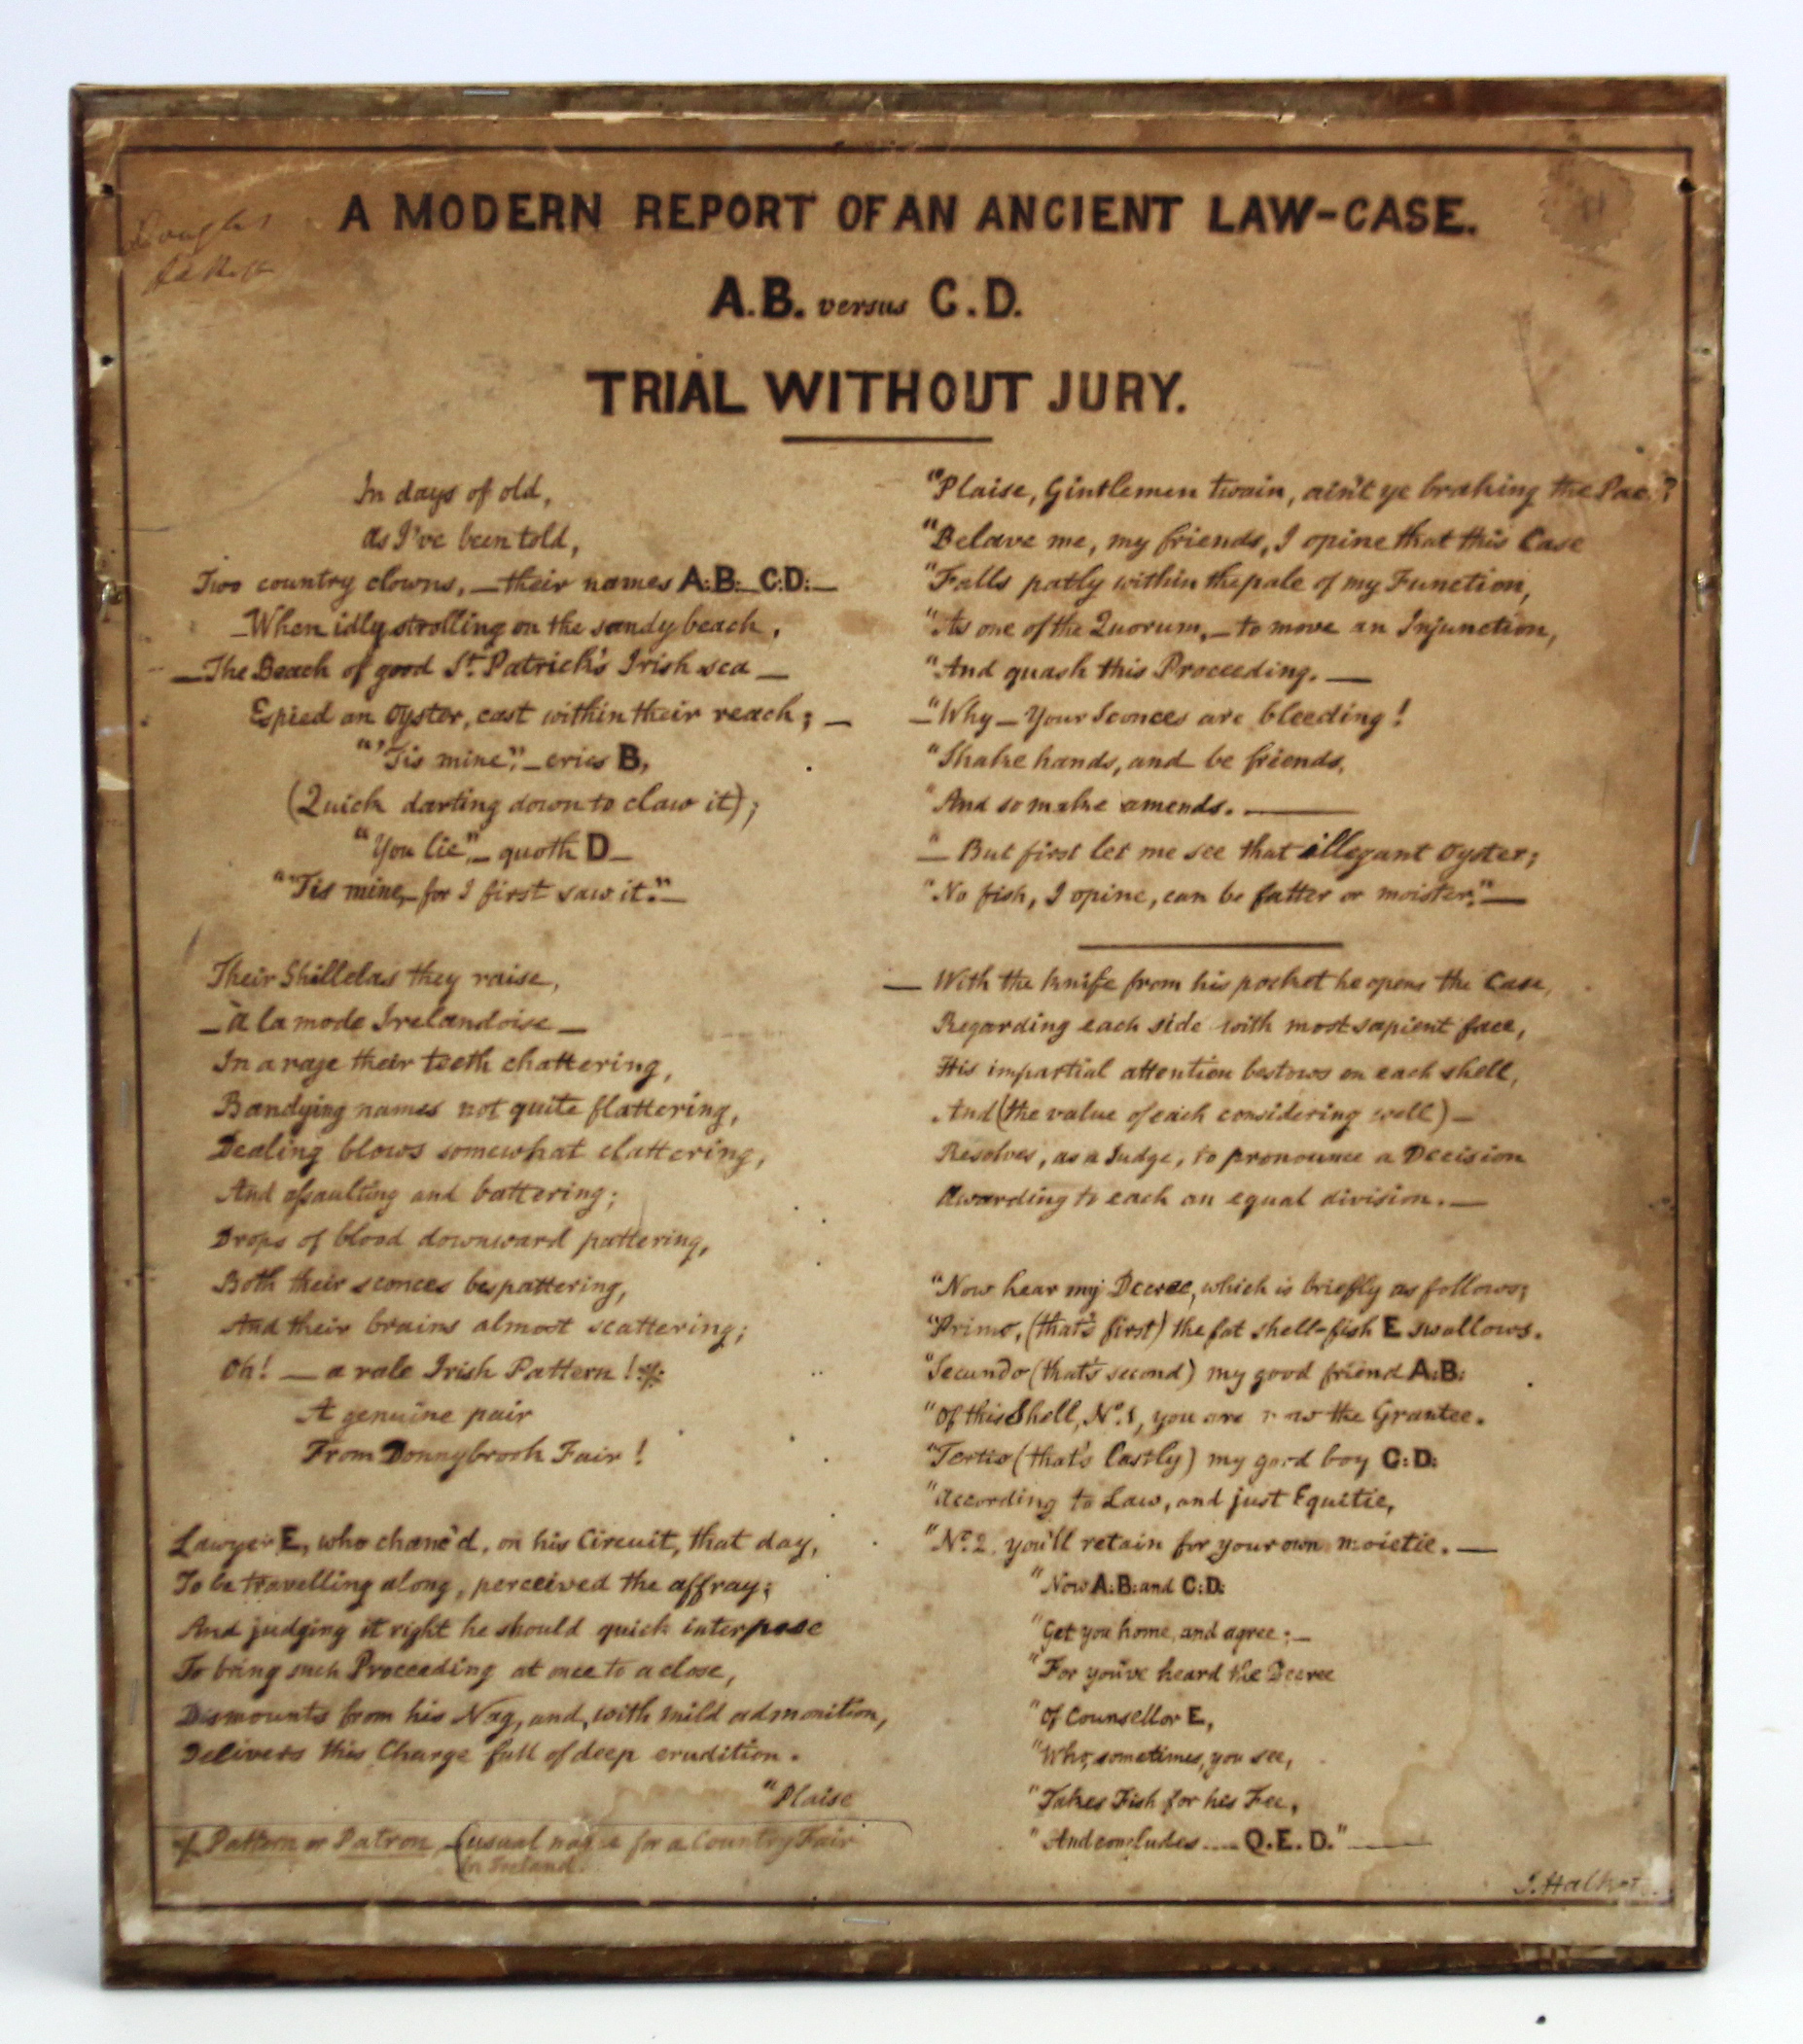 A MODERN REPORT OF AN ANCIENT LAW-CASE.
A.B. versus C.D.
TRIAL WITHOUT JURY.
In days of old,
as I've been told,
Two country clowns, — their names A:B:— C:D:—
— When idly strolling on the sandy beach,
— The Beach of good St. Patrick's Irish sea —
Espied an Oyster, cast within their reach; —
"'Tis mine", — cries B,
(Quick darting down to claw it);
"You lie", — quoth D —
"'Tis mine, — for I first saw it." —
Their Shillelas they raise,
— à la mode Irelandoise —
In a rage their teeth chattering,
Bandying names not quite flattering,
Dealing blows somewhat clattering,
And assaulting and battering;
Drops of blood downward pattering,
Both their sconces bespattering,
And their brains almost scattering;
Oh! — a rale Irish Pattern! *
A genuine pair
From Donnybrook Fair!
Lawyer E, who chanc'd, on his Circuit, that day,
To be travelling along, perceived the affray;
And judging it right he should quick interpose
To bring such Proceeding at once to a close,
Dismounts from his Nag, and, with mild admonition,
Delivers this Charge full of deep erudition.
"Plaise
* Pattern or Patron, — (usual name for a Country Fair
in Ireland.
"Plaise, Gintlemen twain, ain't ye braking the Pace?
"Belave me, my friends, I opine that this Case
"Falls patly within the pale of my Function,
"As one of the Quorum, — to move an Injunction,
"And quash this Proceeding. —
— "Why — Your Sconces are bleeding!
"Shake hands, and be friends,
"And so make amends. —
"— But first let me see that illegant Oyster;
"No fish, I opine, can be fatter or moister." —
— With the knife from his pocket he opens the Case,
Regarding each side with most sapient face,
His impartial attention bestows on each shell,
And (the value of each considering well) —
Resolves, as a Judge, to pronounce a Decision
Awarding to each an equal division. —
"Now hear my Decree, which is briefly as follows;
"Primo, (that's first) the fat shell-fish E swallows.
"Secundo (that's second) my good friend A:B:
"Of this Shell, No. 1, you are now the Grantee.
"Tertio (that's lastly) my good boy C:D:
"According to Law, and just Equitie,
"No. 2. you'll retain for your own moietie. —
"Now A:B: and C:D:
"Get you home, and agree; —
"For you've heard the Decree
"Of Counsellor E,
"Who, sometimes, you see,
"Takes Fish for his Fee,
"And concludes .... Q.E.D." —